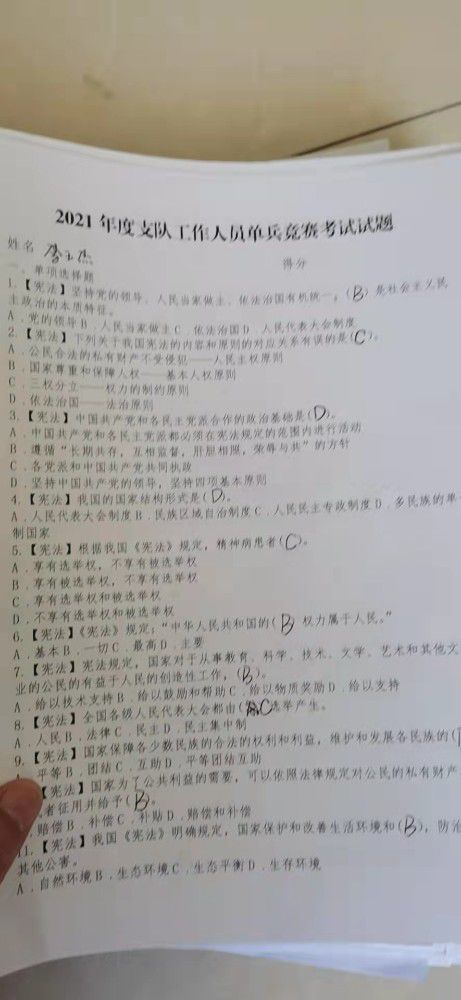 2021 年度支队工作人员单兵竞赛考试试题
姓名 得分
一、单项选择题
1.【宪法】坚持党的领导、人民当家做主、依法治国有机统一,(B)是社会主义民
主政治的本质特征。
A.党的领导B.人民当家做主C.依法治国D.人民代表大会制度
2.【宪法】下列关于我国宪法的内容和原则的对应关系有误的是(C)。
A.公民合法的私有财产不受侵犯——人民主权原则
B.国家尊重和保障人权——基本人权原则
C.三权分立——权力的制约原则
D.依法治国——法治原则
3.【宪法】中国共产党和各民主党派合作的政治基础是(D)。
A.中国共产党和各民主党派都必须在宪法规定的范围内进行活动
B.遵循“长期共存,互相监督,肝胆相照,荣辱与共”的方针
C.各党派和中国共产党共同执政
D.坚持中国共产党的领导,坚持四项基本原则
4.【宪法】我国的国家结构形式是(D)。
A.人民代表大会制度B.民族区域自治制度C.人民民主专政制度D.多民族的单一
制国家
5.【宪法】根据我国《宪法》规定,精神病患者(C)。
A.享有选举权,不享有被选举权
B.享有被选举权,不享有选举权
C.享有选举权和被选举权
D.不享有选举权和被选举权
6.【宪法】《宪法》规定:“中华人民共和国的(B 权力属于人民。”
A.基本B.一切C.最高D.主要
7.【宪法】宪法规定,国家对于从事教育、科学、技术、文学、艺术和其他文
业的公民的有益于人民的创造性工作,(B)。
A.给以技术支持B.给以鼓励和帮助C.给以物质奖励D.给以支持
8.【宪法】全国各级人民代表大会都由(C选举产生。
A.人民B.法律C.民主D.民主集中制
9.【宪法】国家保障各少数民族的合法的权利和利益,维护和发展各民族的(
平等B.团结C.互助D.平等团结互助
【宪法】国家为了公共利益的需要,可以依照法律规定对公民的私有财产
者征用并给予(B)。
.赔偿B.补偿C.补贴D.赔偿和补偿
11.【宪法】我国《宪法》明确规定,国家保护和改善生活环境和(B),防治
其他公害。
A.自然环境B.生态环境C.生态平衡D.生存环境